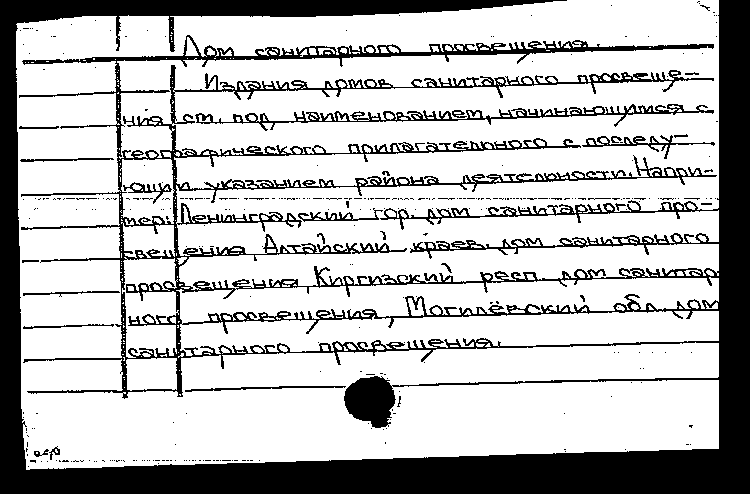 Дом санитарного просвещения.
Издания домов санитарного просвеще-
ния см. под наименованием, начинающимся с
географического прилагательного с последу-
ющим указанием района деятельности. Напри-
мер: Ленинградский гор. дом санитарного про-
свещения, Алтайский краев. дом санитарного
просвещения, Киргизский респ. дом санитар
ного просвещения, Могилёвский обл. дом
санитарного просвещения.